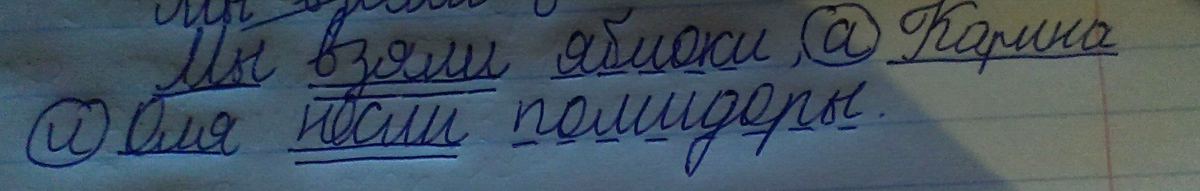 Мы взяли яблоки, а Карина
и Оля несли помидоры.